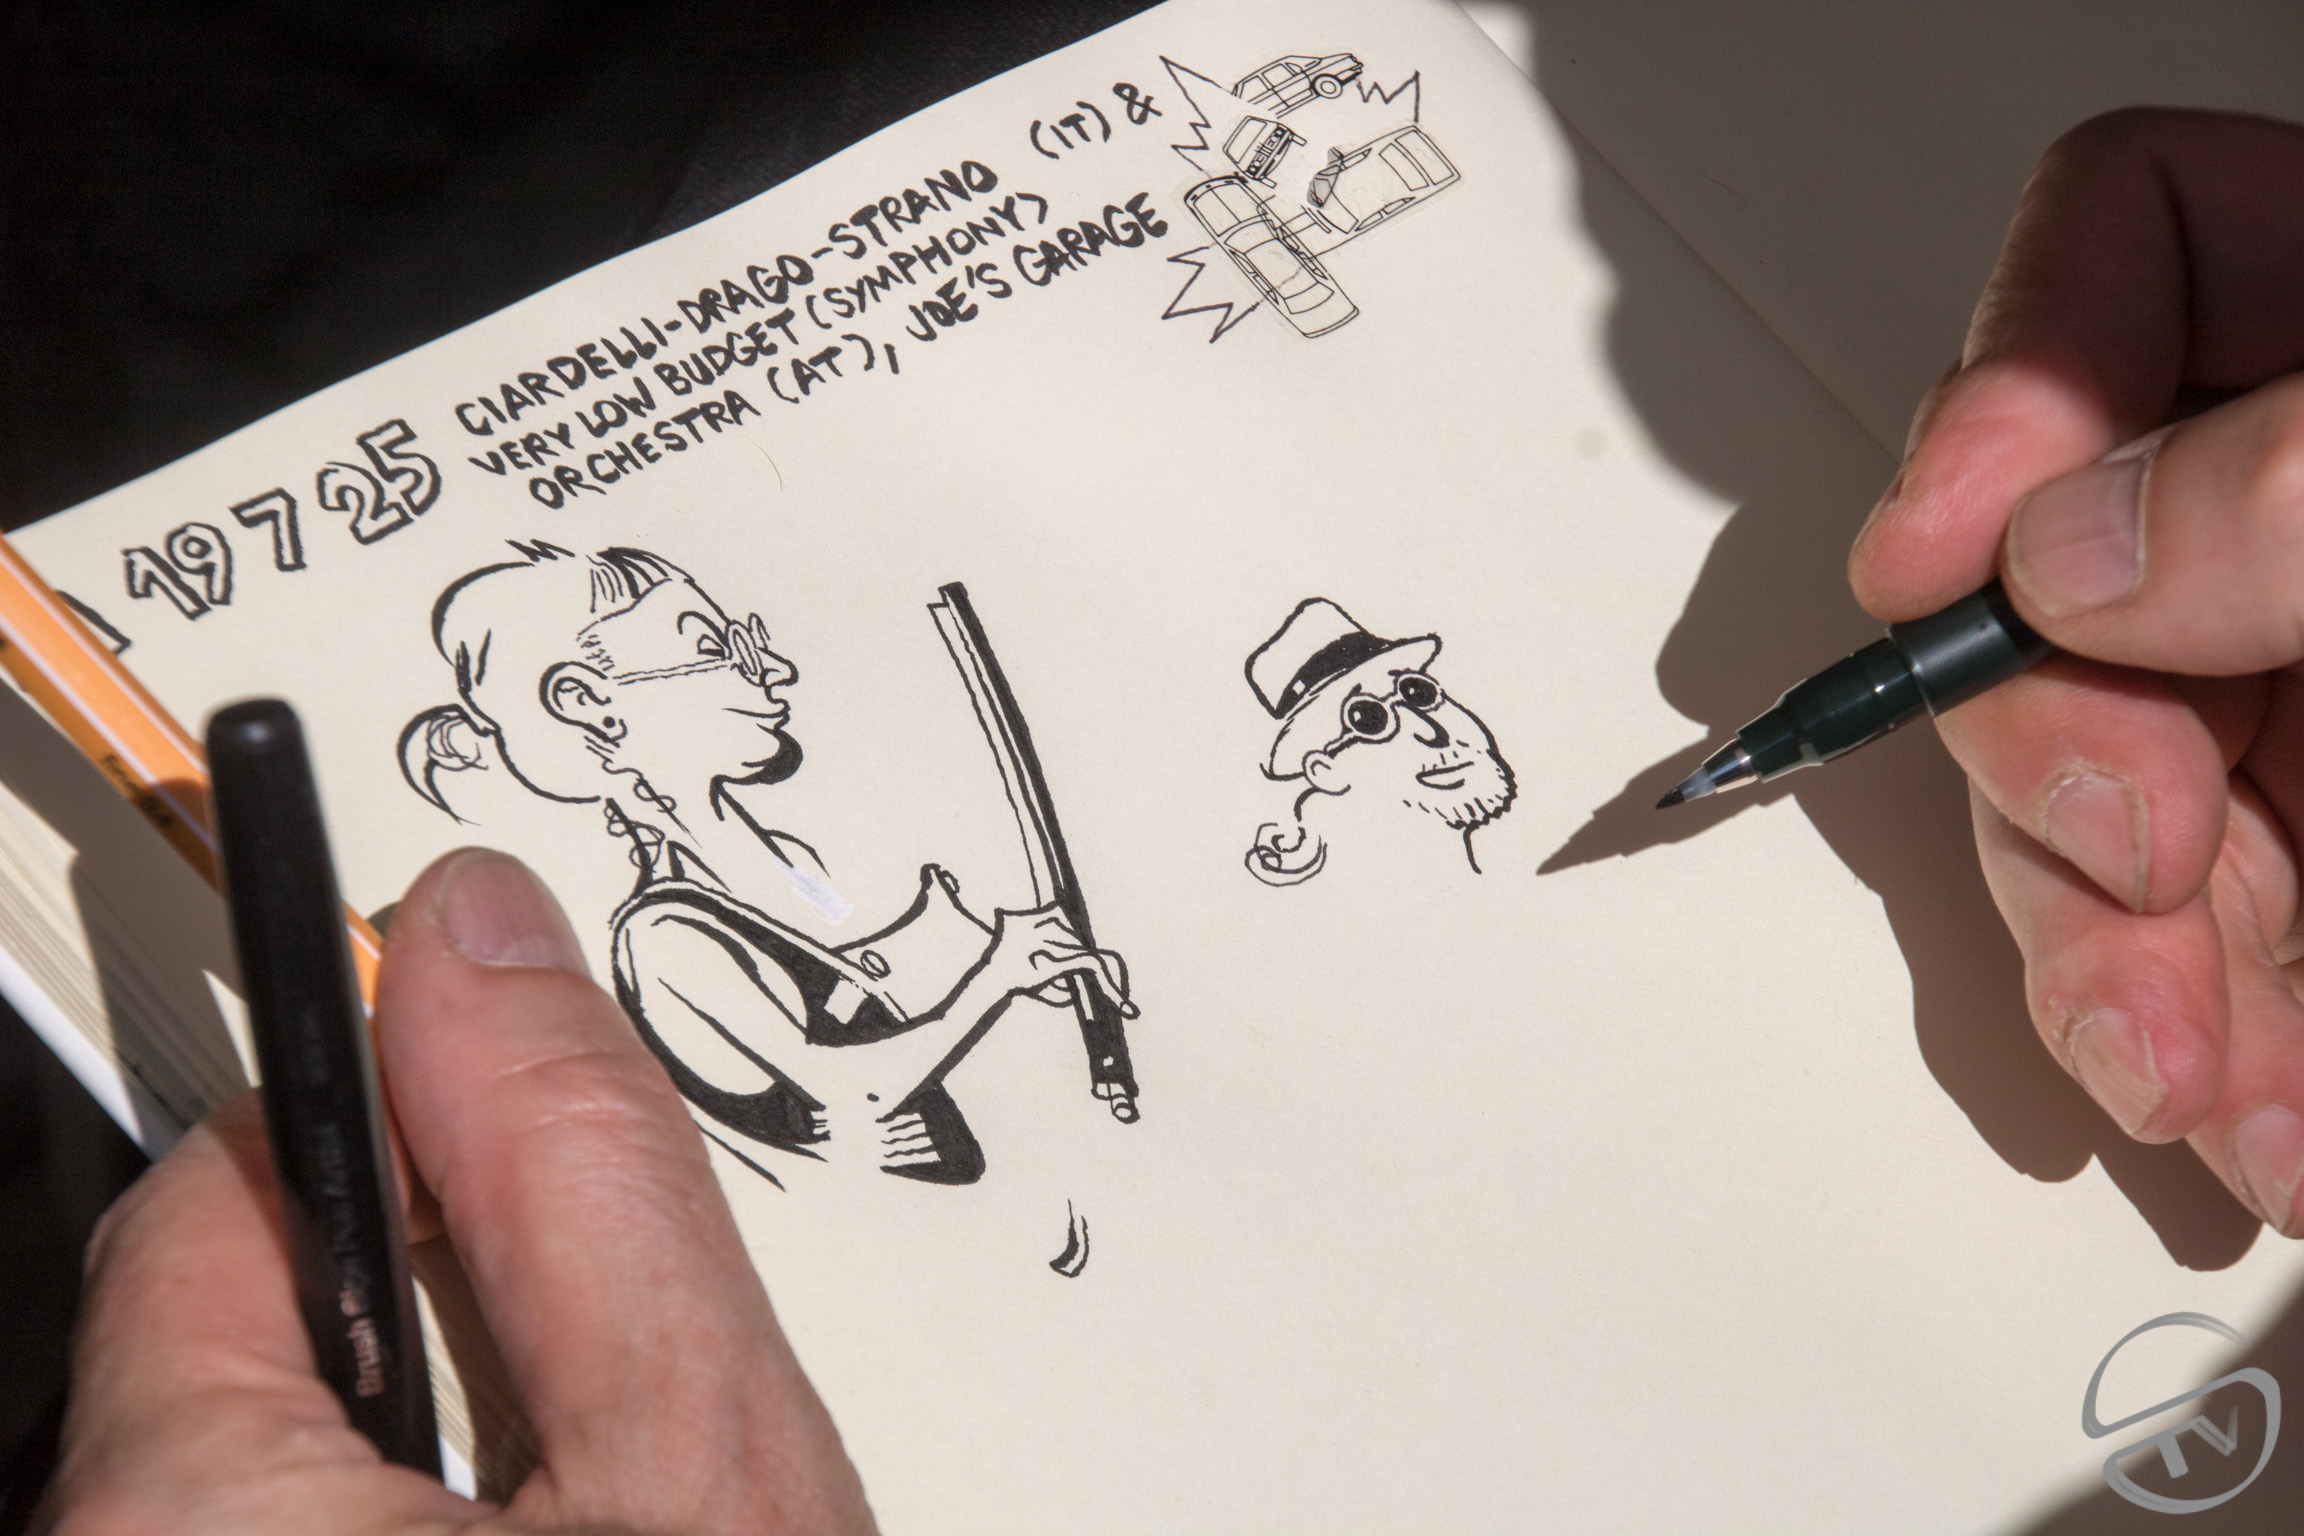 19 7 25
CIARDELLI-DRAGO-STRANO (IT) &
VERY LOW BUDGET (SYMPHONY)
ORCHESTRA (AT), JOE'S GARAGE
Brush
TV